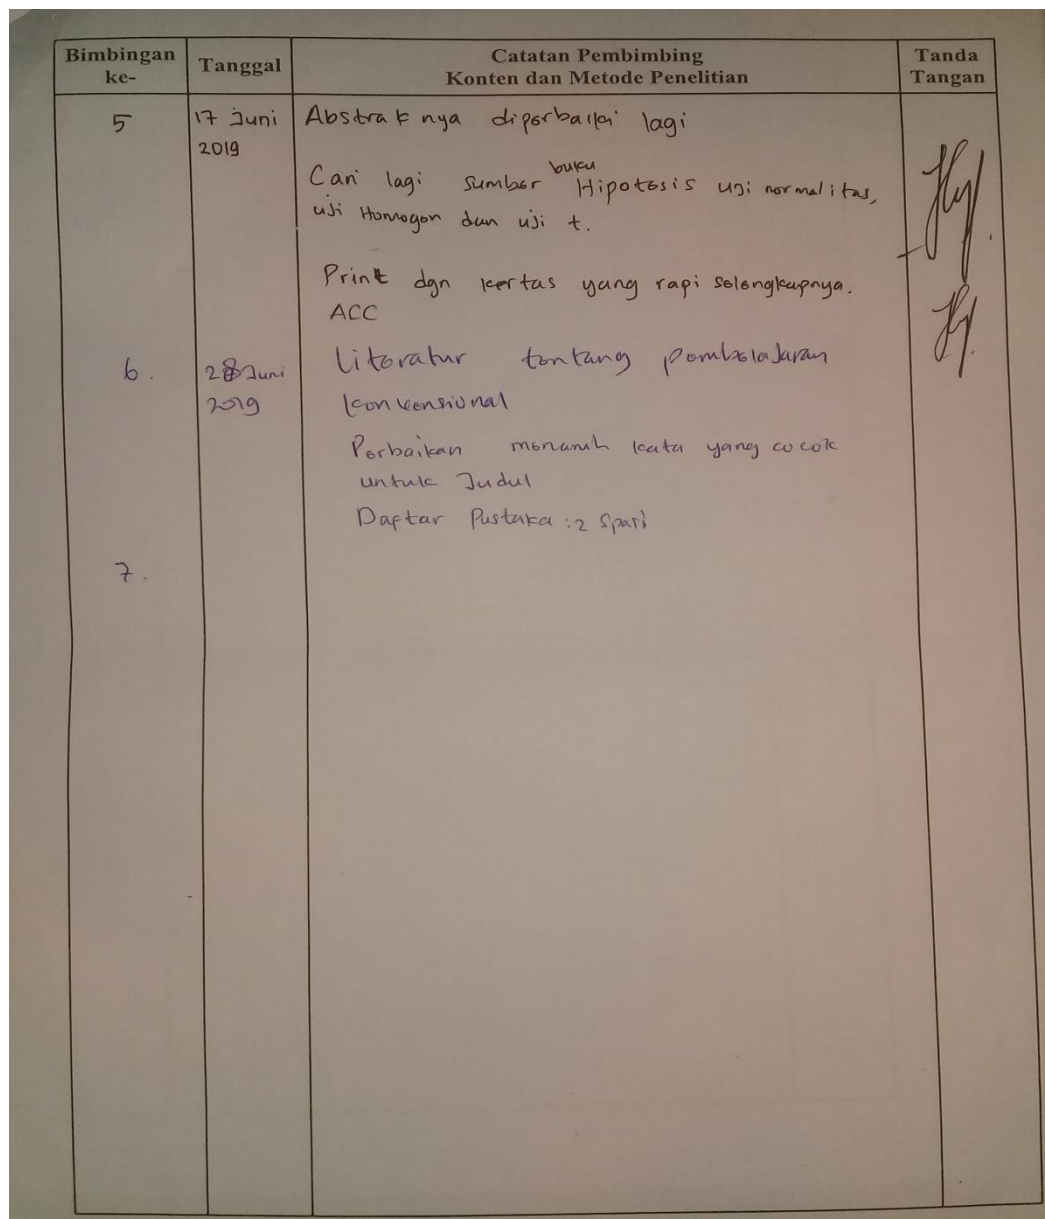 Bimbingan ke-
Tanggal
Catatan Pembimbing
Konten dan Metode Penelitian
Tanda Tangan
5
17 Juni
2019
Abstraknya diperbaiki lagi
Cari lagi sumber buku Hipotesis uji normalitas,
uji Homogen dan uji t.
Print dgn kertas yang rapi selengkapnya.
ACC
6.
28 Juni
2019
Literatur tentang pembelajaran
konvensional
Perbaikan menaruh kata yang cocok
untuk Judul
Daftar Pustaka : 2 Spasi
7.